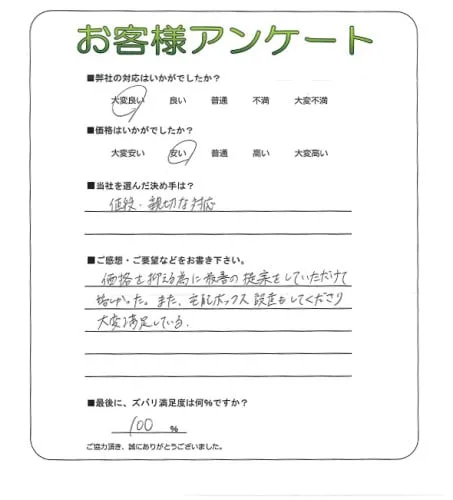 お客様アンケート
■弊社の対応はいかがでしたか？
大変良い 良い 普通 不満 大変不満
■価格はいかがでしたか？
大変安い 安い 普通 高い 大変高い
■当社を選んだ決め手は？
値段・親切な対応
■ご感想・ご要望などをお書き下さい。
価格を抑える為に最善の提案をしていただけて
嬉しかった。また、宅配ボックス設置もしてくださり
大変満足している。
■最後に、ズバリ満足度は何％ですか？
100 ％
ご協力頂き、誠にありがとうございました。